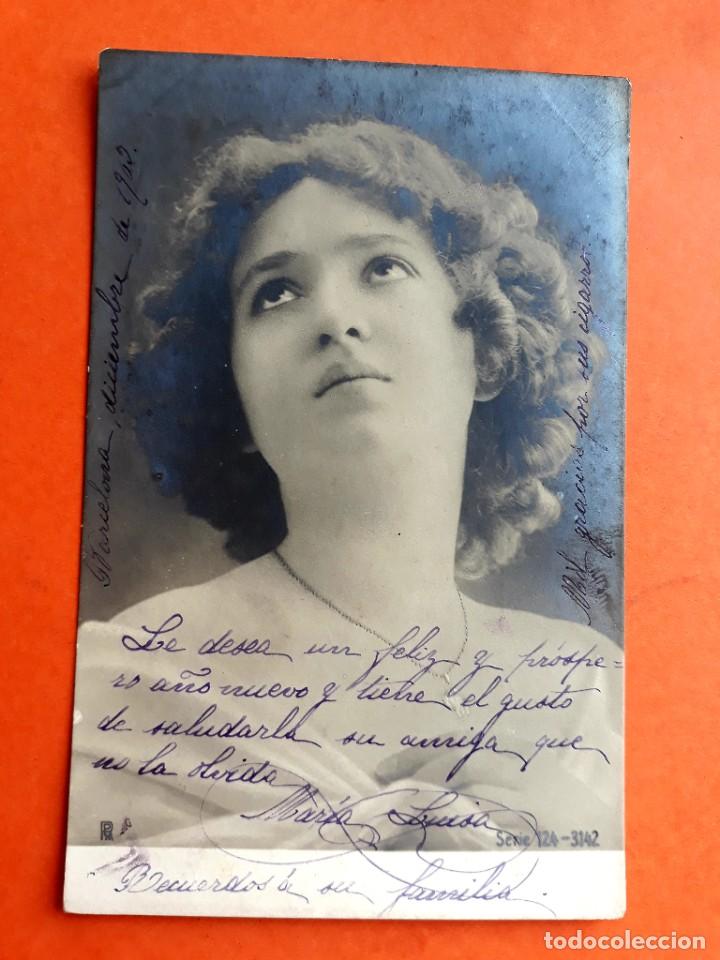 Barcelona, diciembre de 1902.
Le desea un feliz y próspe-
ro año nuevo y tiene el gusto
de saludarla su amiga que
no la olvida
María Luisa
Recuerdos á su familia.
Mil gracias por sus cigarros.
Serie 124-3142
todocoleccion.net